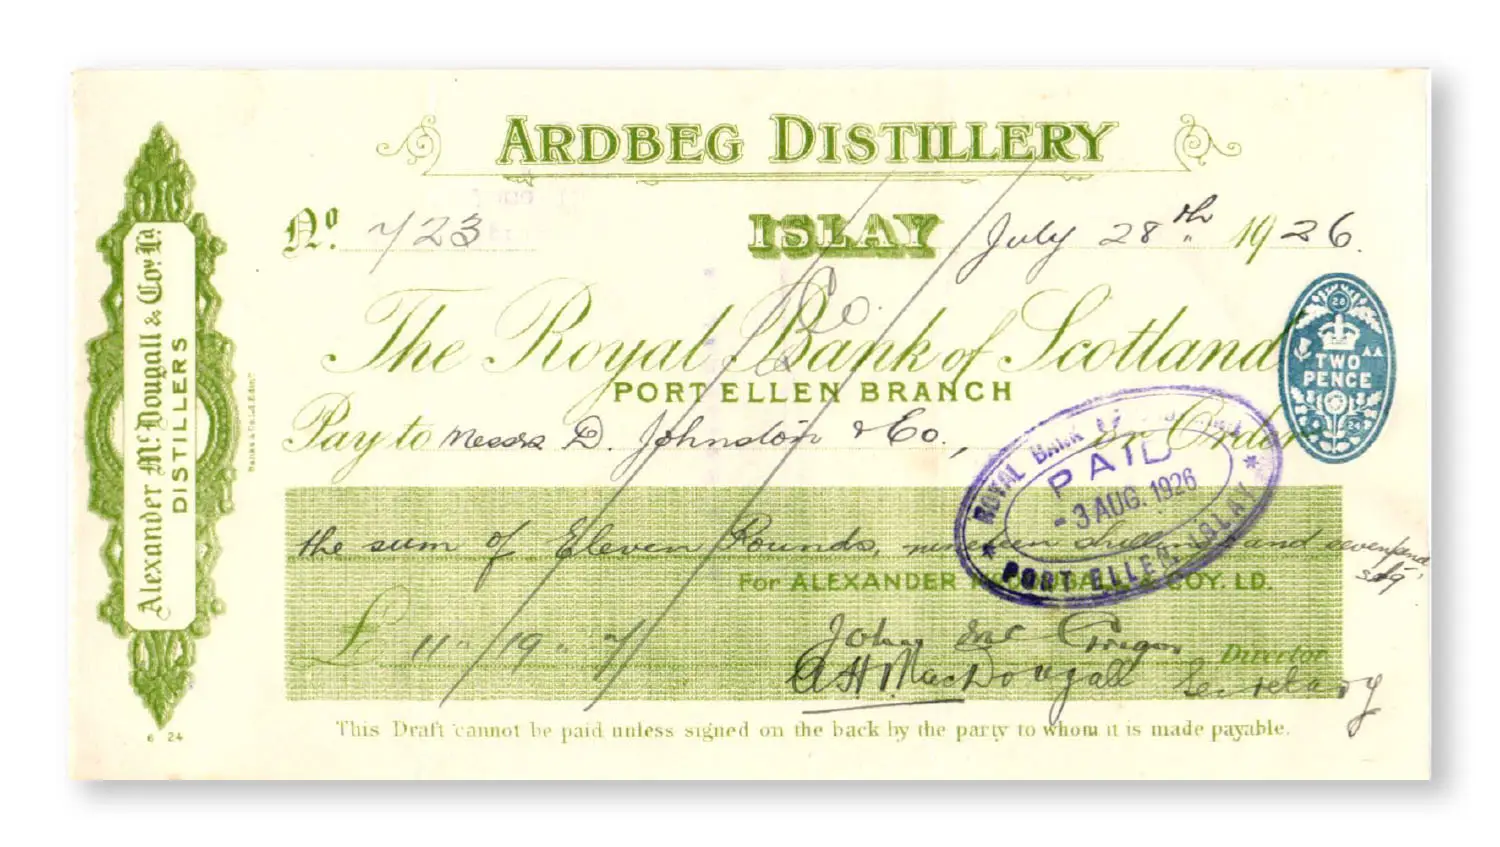 ARDBEG DISTILLERY
Nº. 723 ISLAY July 28th 1926.
& Co.
The Royal Bank of Scotland
PORT ELLEN BRANCH
Pay to Messrs D. Johnston & Co., or Order
the sum of Eleven Pounds, nineteen and sevenpence
For ALEXANDER COY. LD.
£ 11 " 19 " 7
John Mc Gregor Director
A H MacDougall Secretary
This Draft cannot be paid unless signed on the back by the party to whom it is made payable.
Alexander McDougall & Coy. Ld.
DISTILLERS
6 24
28
TWO
PENCE
AA
24
ROYAL BANK OF
PAID
- 3 AUG. 1926
PORT ELLEN, ISLAY